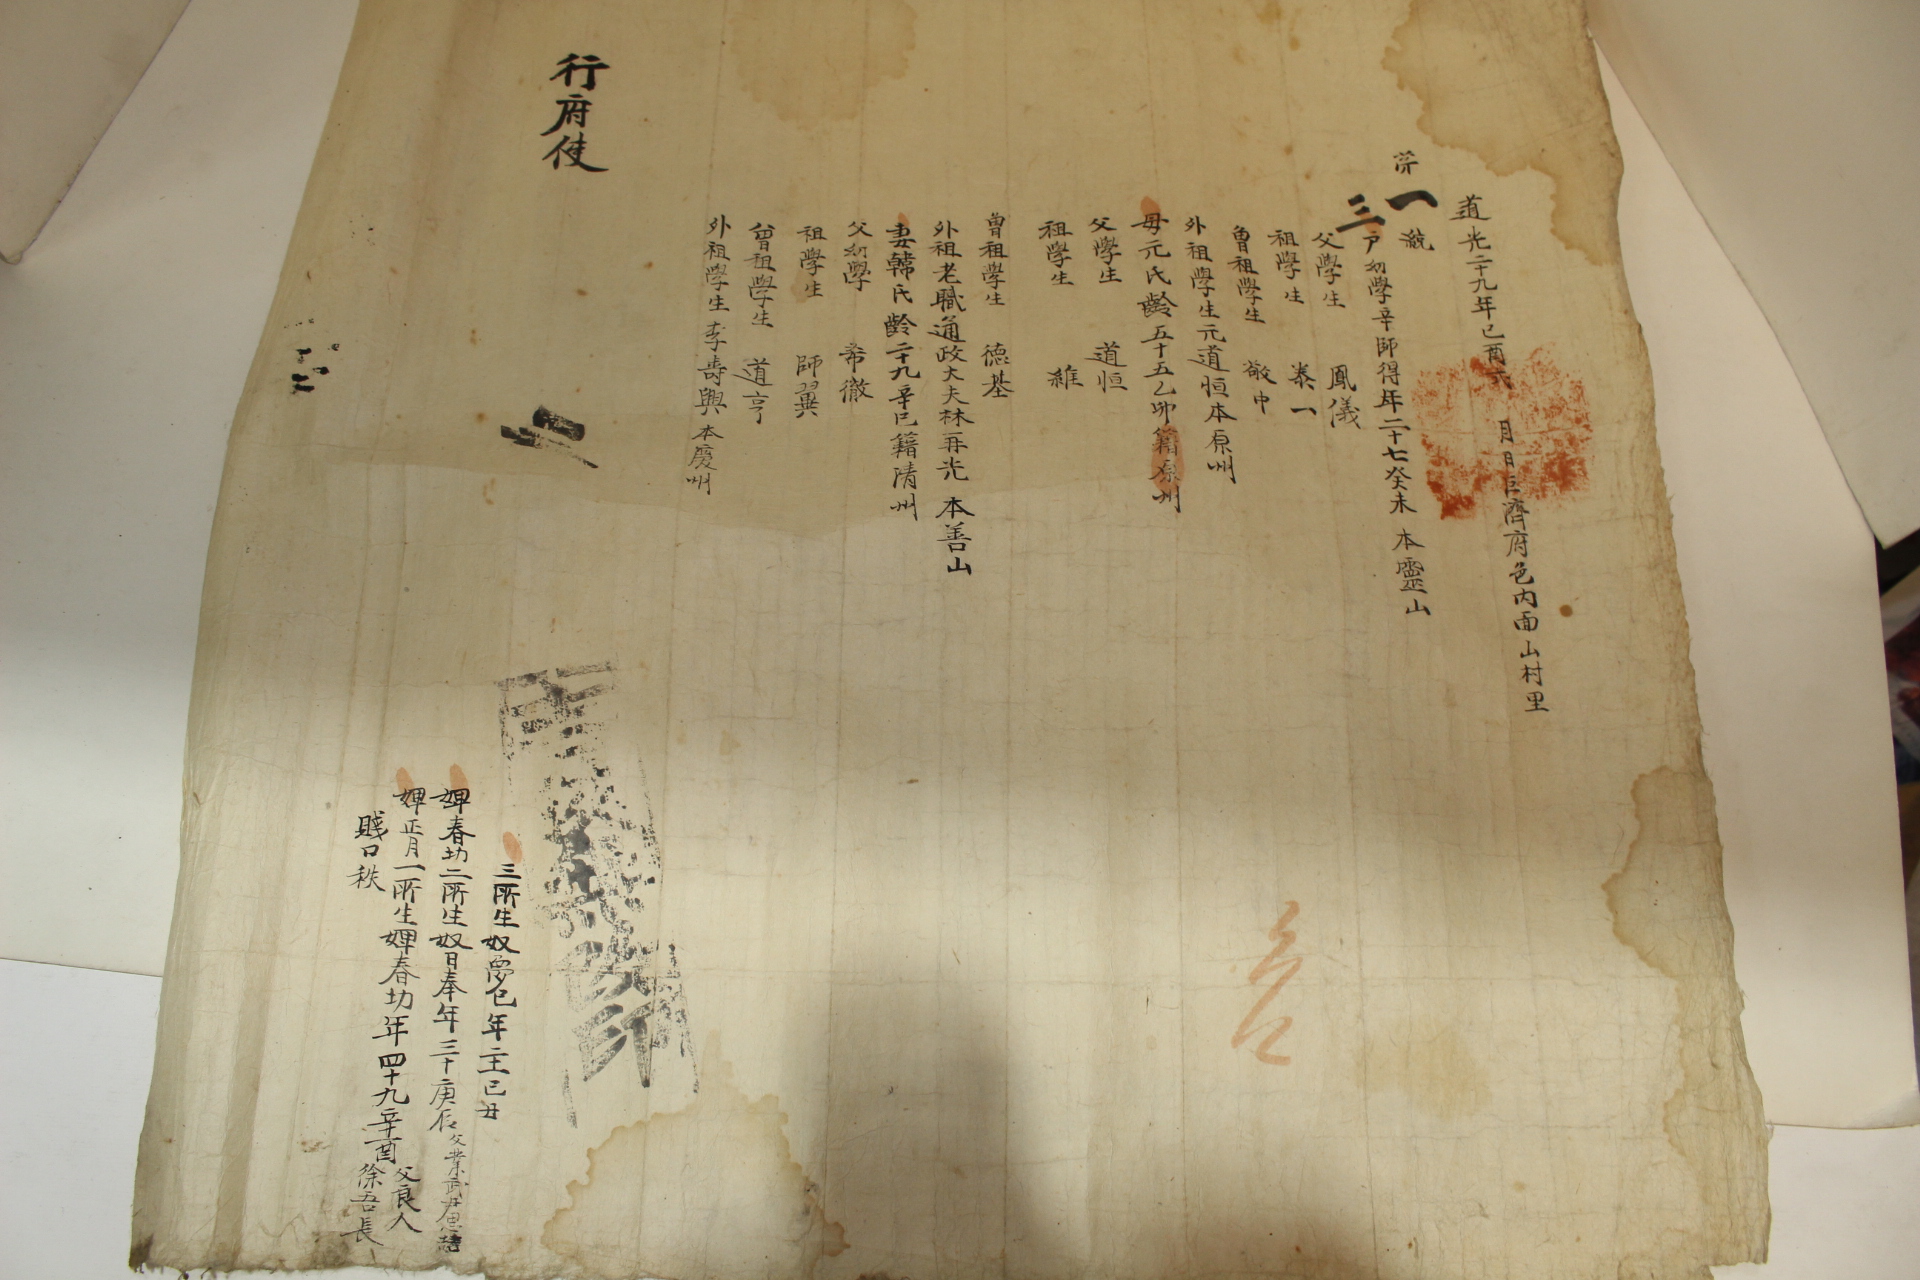 道光二十九年己酉六 月 日巨濟府邑內面山村里
第一 號
三戶幼學辛師得年二十七癸未 本靈山
父學生 鳳儀
祖學生 泰一
曾祖學生 敬中
外祖學生元道恒本原州
母元氏齡五十五乙卯籍原州
父學生 道恒
祖學生 維
曾祖學生 德基
外祖老職通政大夫林再光 本善山
妻韓氏齡二十九辛巳籍淸州
父幼學 希徹
祖學生 師翼
曾祖學生 道亨
外祖學生李壽興 本慶州
行府使
賤口秩
婢正月一所生婢春㓛年四十九辛酉 父良人徐吾長
婢春㓛二所生奴日奉年三十庚辰 父業武
三所生奴 年二十一己丑